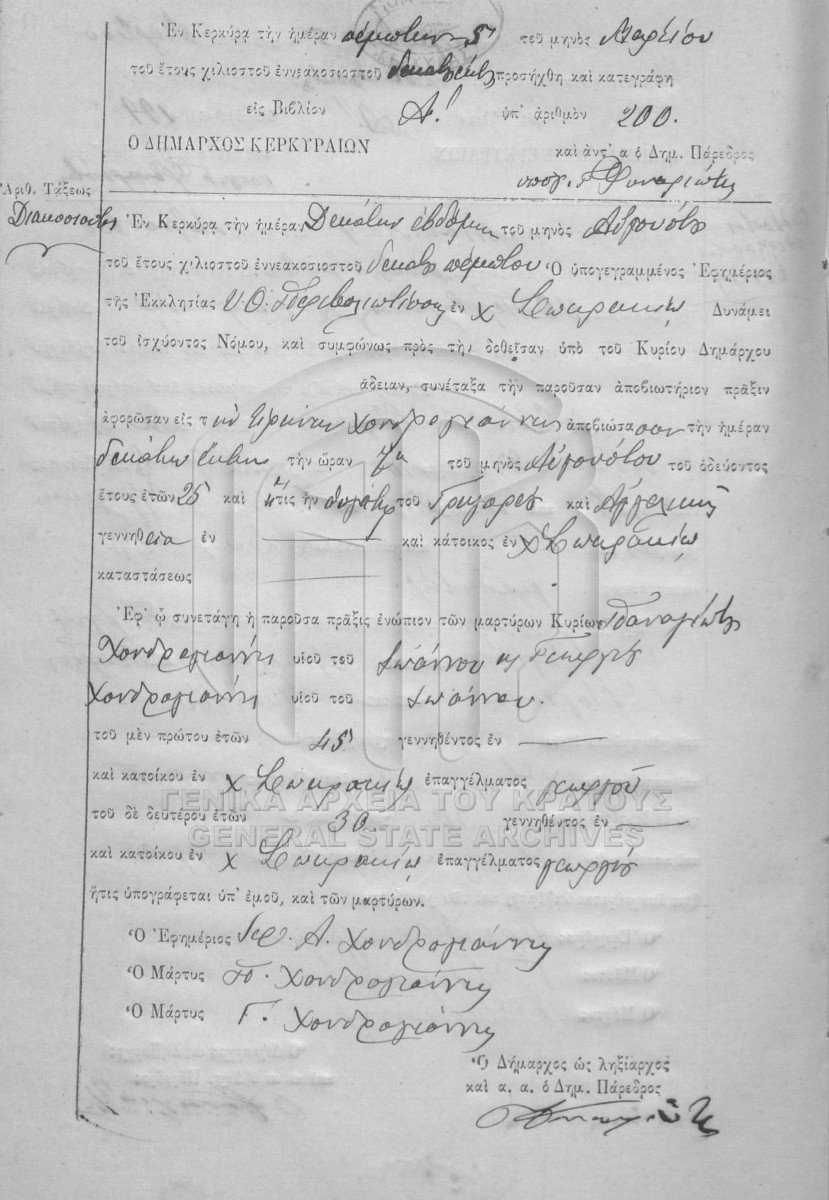 Ἐν Κερκύρᾳ τὴν ἡμέραν πέμπτην 5 τοῦ μηνὸς Μαρτίου
τοῦ ἔτους χιλιοστοῦ ἐννεακοσιοστοῦ προσήχθη καὶ κατεγράφη
εἰς Βιβλίον Α! ὑπ' ἀριθμὸν 200.
Ὁ ΔΗΜΑΡΧΟΣ ΚΕΡΚΥΡΑΙΩΝ
καὶ ἀντ' α ὁ Δημ. Πάρεδρος
υπογ.
Ἀριθ. Τάξεως
Διακοσιοστὴ
Ἐν Κερκύρᾳ τὴν ἡμέραν Δεκάτην ἑβδόμην τοῦ μηνὸς Αὐγούστου
τοῦ ἔτους χιλιοστοῦ ἐννεακοσιοστοῦ δεκάτου πέμπτου Ὁ ὑπογεγραμμένος Ἐφημέριος
τῆς Ἐκκλησίας Υ. Θ. Περιβλιωτίσσης ἐν χ Σωκρακίῳ Δυνάμει
τοῦ ἰσχύοντος Νόμου, καὶ συμφώνως πρὸς τὴν δοθεῖσαν ὑπὸ τοῦ Κυρίου Δημάρχου
ἄδειαν, συνέταξα τὴν παροῦσαν ἀποβιωτήριον πρᾶξιν
ἀφορῶσαν εἰς τὴν Εἰρήνην Χονδρογιάννη ἀποβιώσασαν τὴν ἡμέραν
δεκάτην ἕκτην τὴν ὥραν 7ην τοῦ μηνὸς Αὐγούστου τοῦ ὁδεύοντος
ἔτους ἐτῶν 25 καὶ ἥτις ἦν θυγάτηρ τοῦ Γρηγορίου καὶ Ἀγγελικῆς
γεννηθεῖσα ἐν — καὶ κάτοικος ἐν χ Σωκρακίῳ
καταστάσεως —
Ἐφ' ᾧ συνετάγη ἡ παροῦσα πρᾶξις ἐνώπιον τῶν μαρτύρων Κυρίων Παναγιώτη
Χονδρογιάννη υἱοῦ τοῦ Ἰωάννου κ Γεωργίου
Χονδρογιάννη υἱοῦ τοῦ Ἰωάννου.
τοῦ μὲν πρώτου ἐτῶν 45 γεννηθέντος ἐν —
καὶ κατοίκου ἐν χ Σωκρακίῳ ἐπαγγέλματος γεωργοῦ
τοῦ δὲ δευτέρου ἐτῶν 30 γεννηθέντος ἐν —
καὶ κατοίκου ἐν χ Σωκρακίῳ ἐπαγγέλματος γεωργοῦ
ἥτις ὑπογράφεται ὑπ' ἐμοῦ, καὶ τῶν μαρτύρων.
Ὁ Ἐφημέριος Ἱερ. Α. Χονδρογιάννης
Ὁ Μάρτυς Π. Χονδρογιάννης
Ὁ Μάρτυς Γ. Χονδρογιάννης
Ὁ Δήμαρχος ὡς ληξίαρχος
καὶ α. α. ὁ Δημ. Πάρεδρος
ΓΕΝΙΚΑ ΑΡΧΕΙΑ ΤΟΥ ΚΡΑΤΟΥΣ
GENERAL STATE ARCHIVES